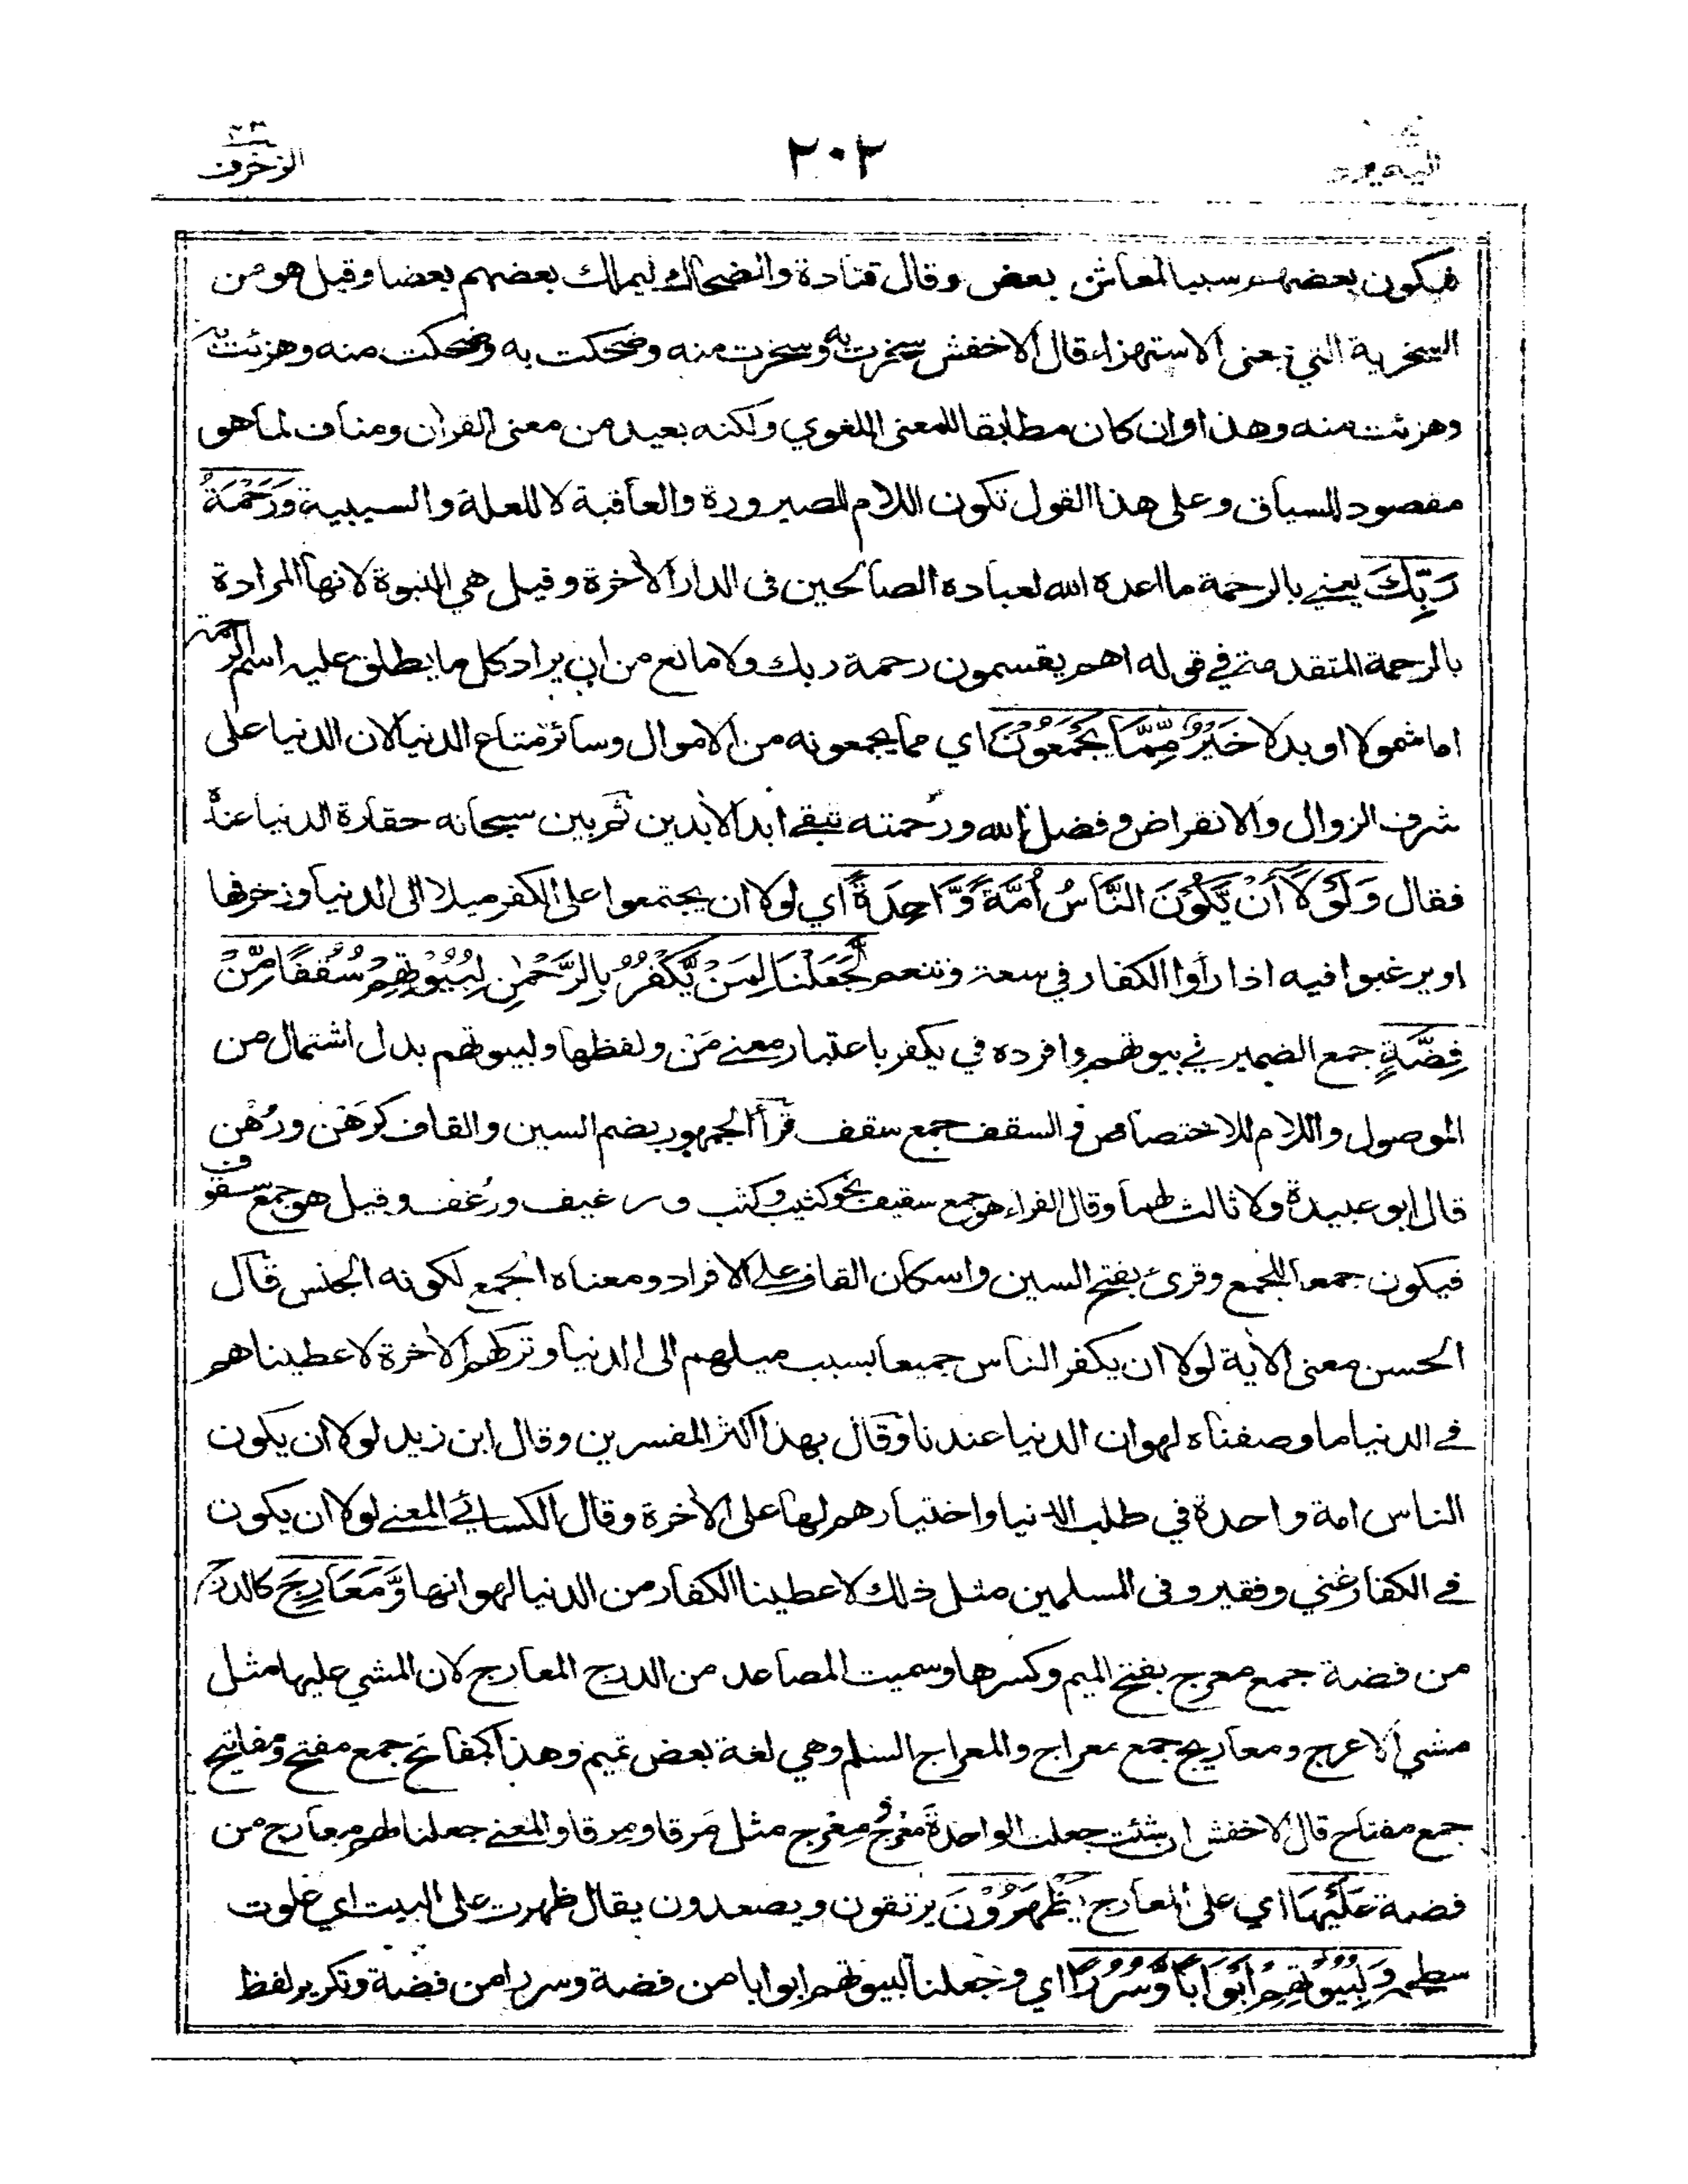 ٢٠٢
الزخرف
فيكون بعضهم سببا لمعاش بعض وقال قتادة والضحاك ليملك بعضهم بعضا وقيل هو من
السخرية التي بمعنى الاستهزاء قال الاخفش سخرت به وسخرت منه وضحكت به وضحكت منه وهزئت به
وهزئت منه وهذا وان كان مطابقا للمعنى اللغوي ولكنه بعيد من معنى القرأن ومناف لما هو
مقصود السياق وعلى هذا القول تكون اللام للصيرورة والعاقبة لا للعلة والسببية وَرَحْمَةُ
رَبِّكَ يعني بالرحمة ما اعده الله لعباده الصالحين فى الدار الأخرة وقيل هي النبوة لانها المرادة
بالرحمة المتقدمة في قوله اهم يقسمون رحمة ربك ولا مانع من ان يراد كل ما يطلق عليه اسم الرحمة
اما شمولا او بدلا خَيْرٌ مِّمَّا يَجْمَعُوْنَ اي مما يجمعونه من الاموال وسائر متاع الدنيا لان الدنيا على
شرف الزوال والانقراض وفضل الله ورحمته تبقى ابد الأبدين ثم بين سبحانه حقارة الدنيا عنده
فقال وَلَوْلَآ أَنْ يَّكُوْنَ النَّاسُ اُمَّةً وَّاحِدَةً اي لولا ان يجتمعوا على الكفر ميلا الى الدنيا وزخرفها
او يرغبوا فيه اذا رأوا الكفار في سعة وتنعم لَّجَعَلْنَا لِمَنْ يَّكْفُرُ بِالرَّحْمٰنِ لِبُيُوْتِهِمْ سُقُفًا مِّنْ
فِضَّةٍ جمع الضمير في بيوتهم وافرده في يكفر باعتبار معنى مَنْ ولفظها ولبيوتهم بدل اشتمال من
الموصول واللام للاختصاص والسقف جمع سقف قرأ الجمهور بضم السين والقاف كرَهْن ورُهُن
قال ابو عبيدة ولا ثالث لهما وقال الفراء هو جمع سقيف نحو كثيب وكثب و رغيف ورُغف وقيل هو جمع سقوف
فيكون جمعا للجمع وقرئ بفتح السين واسكان القاف على الافراد ومعناه الجمع لكونه الجنس قال
الحسن معنى الأية لولا ان يكفر الناس جميعا بسبب ميلهم الى الدنيا وتركهم الأخرة لاعطيناهم
في الدنيا ما وصفناه لهوان الدنيا عندنا وقال بهذا اكثر المفسرين وقال ابن زيد لولا ان يكون
الناس امة واحدة في طلب الدنيا واختيارهم لها على الأخرة وقال الكسائي المعنى لولا ان يكون
في الكفار غني وفقير وفى المسلمين مثل ذلك لاعطينا الكفار من الدنيا لهوانها وَّمَعَارِجَ كالدرج
من فضة جمع معرج بفتح الميم وكسرها وسميت المصاعد من الدرج المعارج لان المشي عليها مثل
مشي الاعرج ومعاريج جمع معراج والمعراج السلم وهي لغة بعض تميم وهذا كمفاتح جمع مفتح ومفاتيح
جمع مفتاح قال الاخفش ان شئت جعلت الواحدة مَعْرَج ومِعْرَج مثل مَرقاة ومِرقاة والمعنى جعلنا لهم معارج من
فضة عَلَيْهَا اي على المعارج يَظْهَرُوْنَ يرتقون ويصعدون يقال ظهرت على البيت اي علوت
سطحه وَلِبُيُوْتِهِمْ اَبْوَابًا وَّسُرُرًا اي وجعلنا لبيوتهم ابوابا من فضة وسررا من فضة وتكرير لفظ